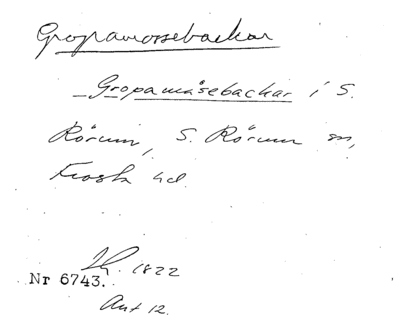 Gropamossebackar
Gropamåsebackar i S.
Rörum, S. Rörum sn,
Frosta hd.
1822
Nr 6743.
Akt 12.